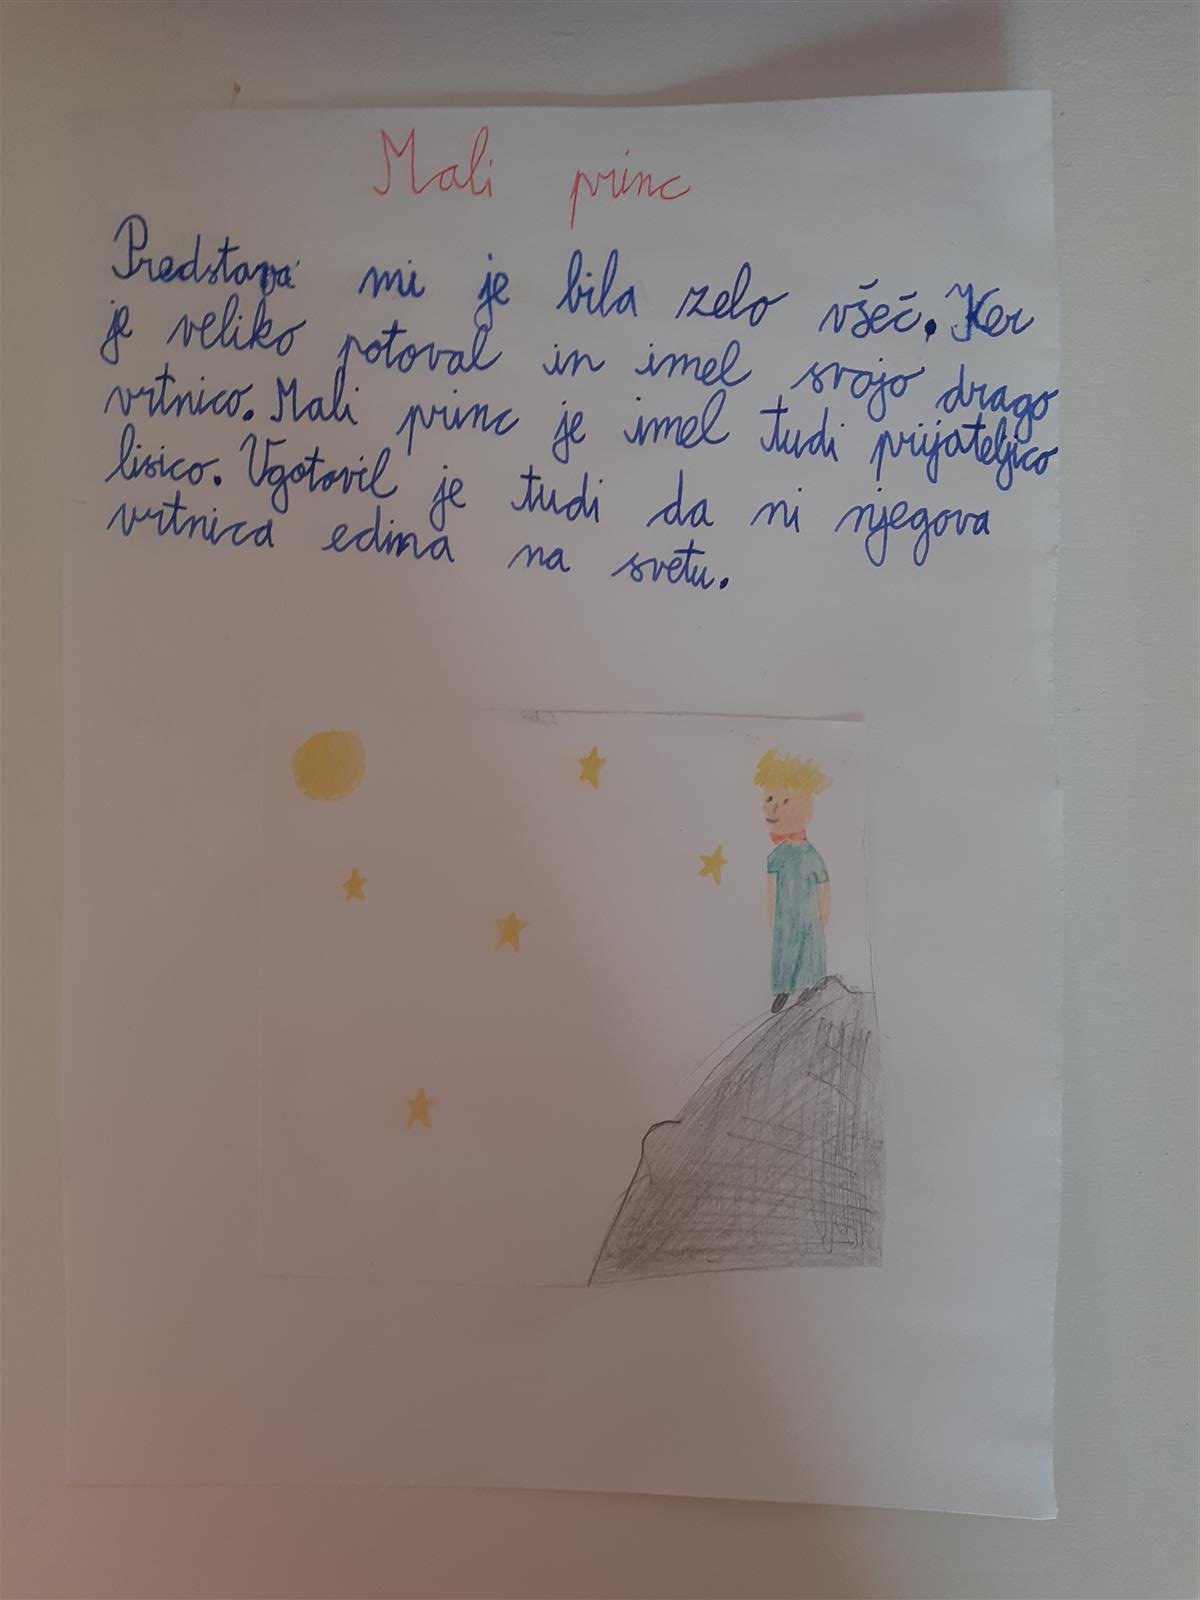 Mali princ
Predstava mi je bila zelo všeč. Ker
je veliko potoval in imel svojo drago
vrtnico. Mali princ je imel tudi prijateljico
lisico. Ugotovil je tudi da ni njegova
vrtnica edina na svetu.